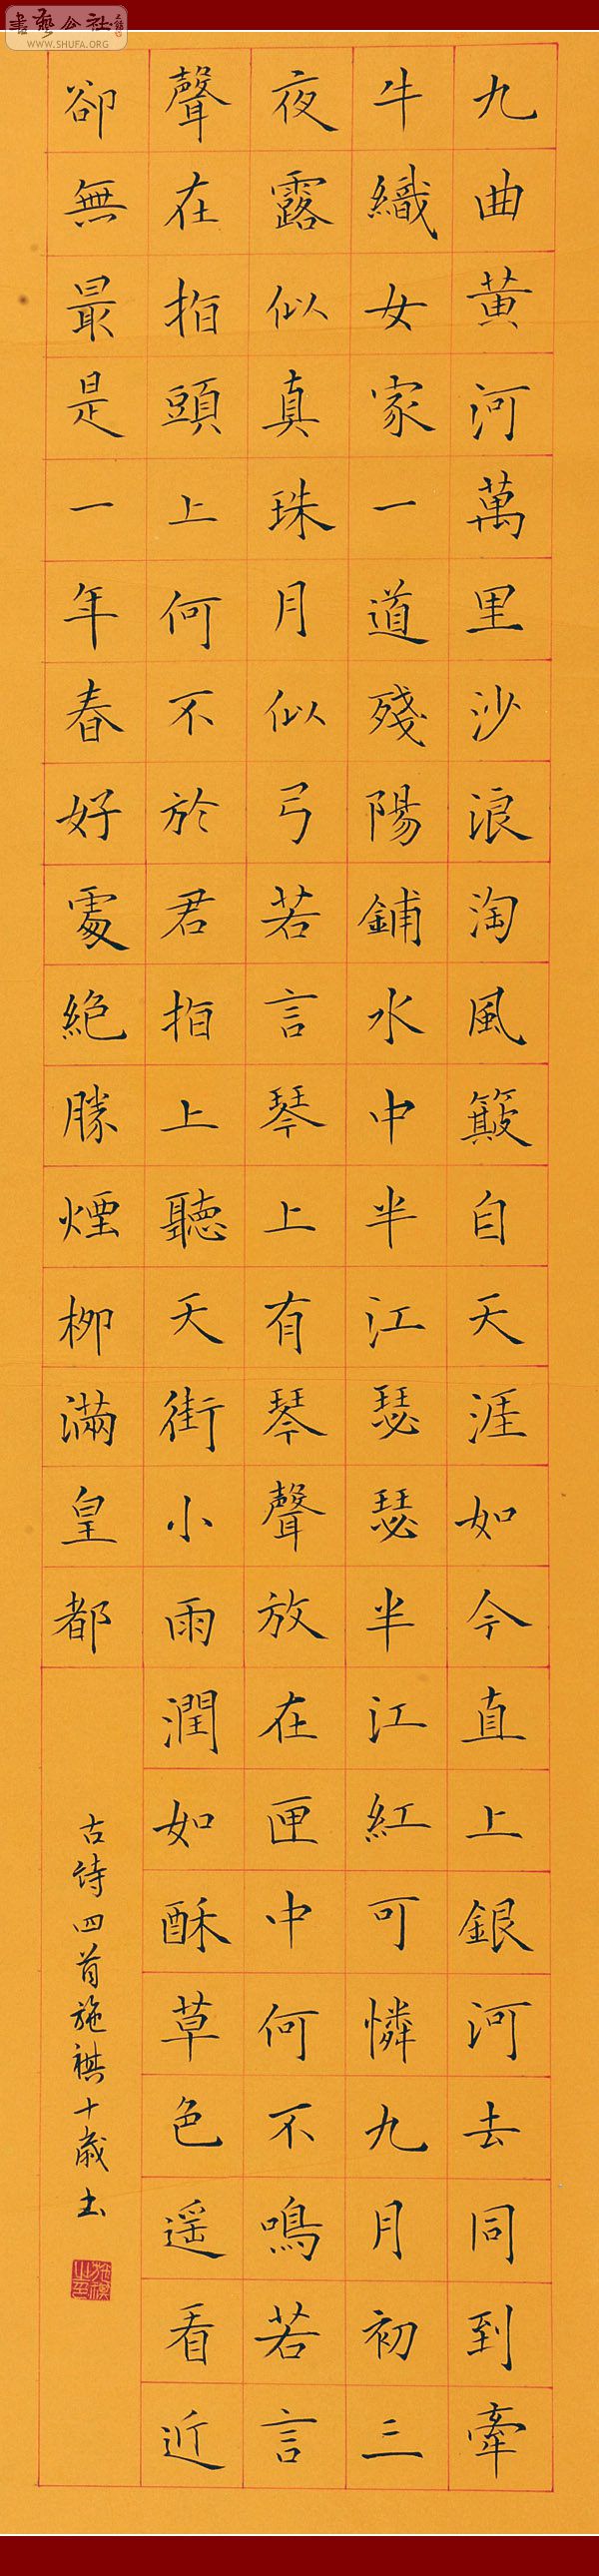 書藝公社
WWW.SHUFA.ORG
九曲黄河萬里沙浪淘風簸自天涯如今直上銀河去同到牽
牛織女家一道殘陽鋪水中半江瑟瑟半江紅可憐九月初三
夜露似真珠月似弓若言琴上有琴聲放在匣中何不鳴若言
聲在指頭上何不於君指上聽天街小雨潤如酥草色遥看近
卻無最是一年春好處絕勝煙柳滿皇都
古詩四首施祺十歲書
施祺之印